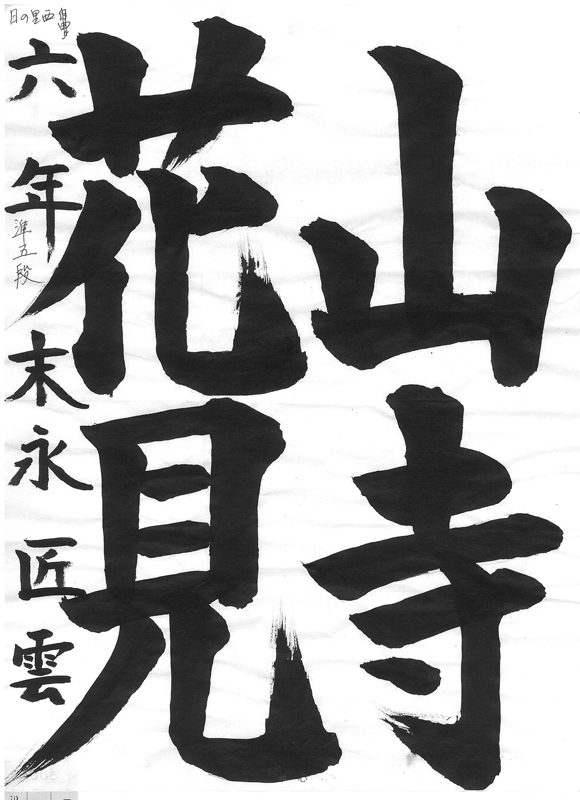 山寺
花見
六年 末永匠雲
準五段
日の里西